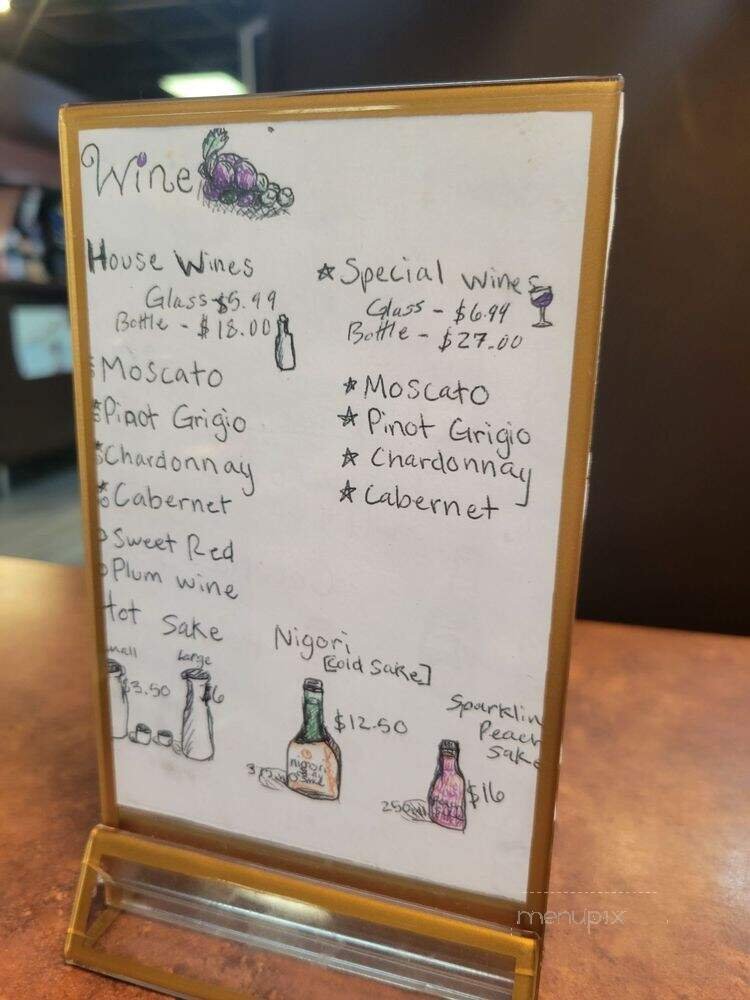 Wine
House Wines
Glass - $5.99
Bottle - $18.00
Moscato
Pinot Grigio
Chardonnay
Cabernet
Sweet Red
Plum wine
☆ Special wines
Glass - $6.99
Bottle - $27.00
☆ Moscato
☆ Pinot Grigio
☆ Chardonnay
☆ Cabernet
Hot Sake
mall
large
$3.50
$6
Nigori
[cold sake]
$12.50
nigori
Sparklin
Peach
Sake
$16
250
menupix